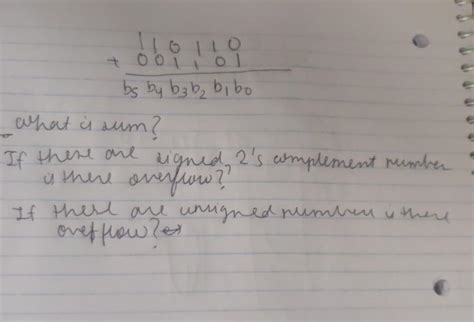 110110
+ 001101
b5 b4 b3 b2 b1 b0
What is sum?
If there are signed 2's complement number
is there overflow?
If there are unsigned number is there
overflow?